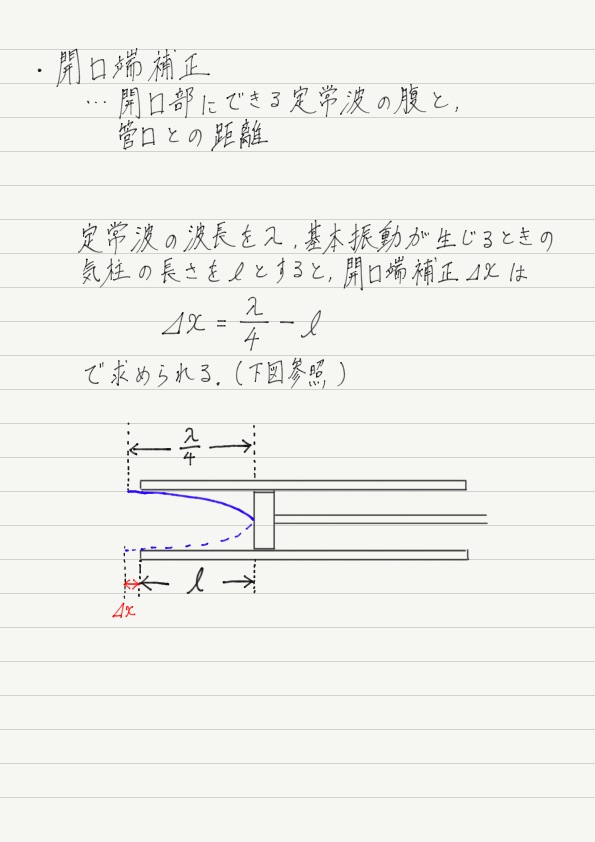 ・開口端補正
… 開口部にできる定常波の腹と,
管口との距離
定常波の波長をλ,基本振動が生じるときの
気柱の長さをlとすると,開口端補正Δxは
Δx = λ/4 − l
で求められる.(下図参照)
λ/4
l
Δx